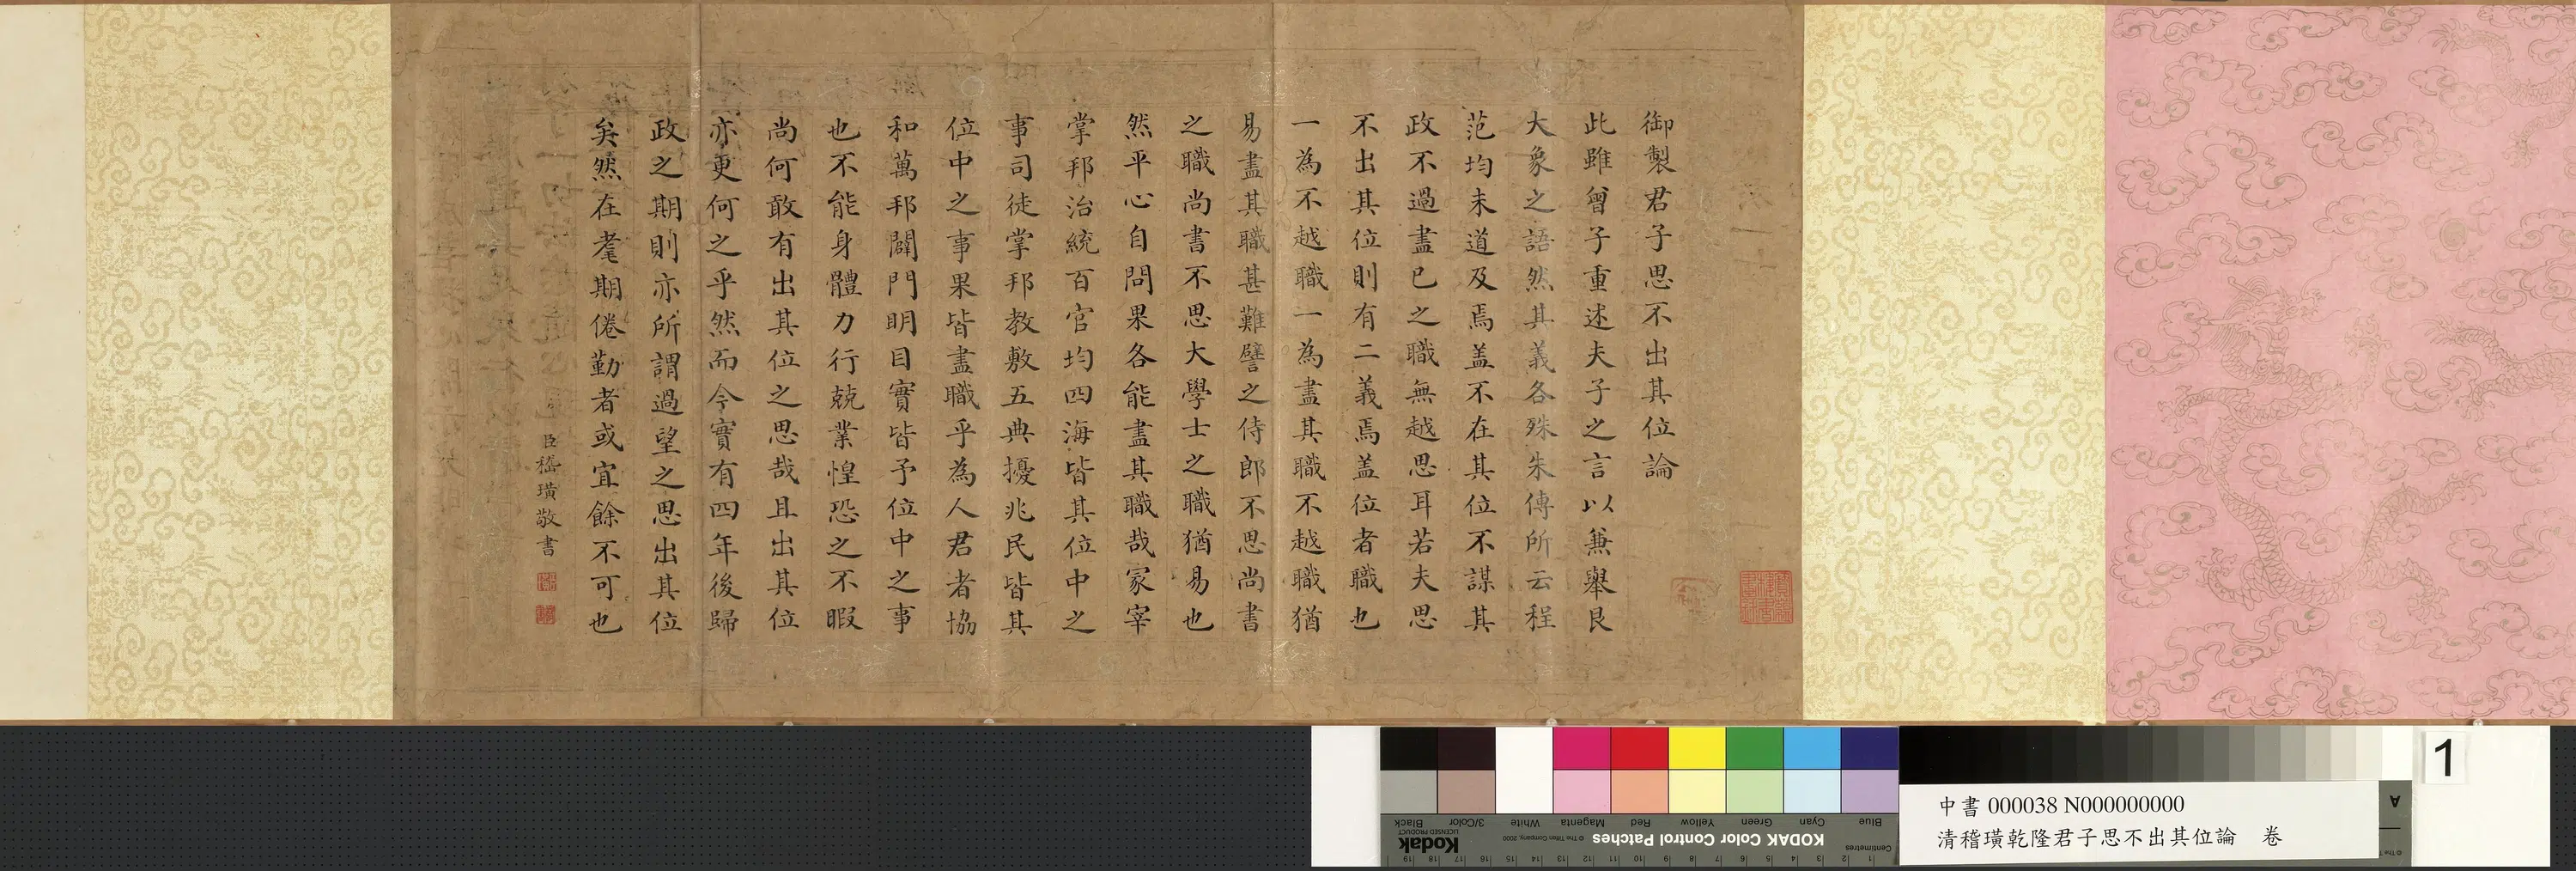 御製君子思不出其位論
此雖曾子重述夫子之言以兼舉艮
大象之語然其義各殊朱傳所云程
范均未道及焉盖不在其位不謀其
政不過盡已之職無越思耳若夫思
不出其位則有二義焉盖位者職也
一為不越職一為盡其職不越職猶
易盡其職甚難譬之侍郎不思尚書
之職尚書不思大學士之職猶易也
然平心自問果各能盡其職哉冢宰
掌邦治統百官均四海皆其位中之
事司徒掌邦教敷五典擾兆民皆其
位中之事果皆盡職乎為人君者協
和萬邦闢門明目實皆予位中之事
也不能身體力行兢業惶恐之不暇
尚何敢有出其位之思哉且出其位
亦更何之乎然而今實有四年後歸
政之期則亦所謂過望之思出其位
矣然在耄期倦勤者或宜餘不可也
臣嵇璜敬書
中書 000038 N000000000
清稽璜乾隆君子思不出其位論 卷
1
Blue Cyan Green Yellow Red Magenta White 3/Color Black
KODAK Color Control Patches
Kodak
LICENSED PRODUCT
© The Tiffen Company, 2000
Centimetres
1 2 3 4 5 6 7 8 9 10 11 12 13 14 15 16 17 18 19
A